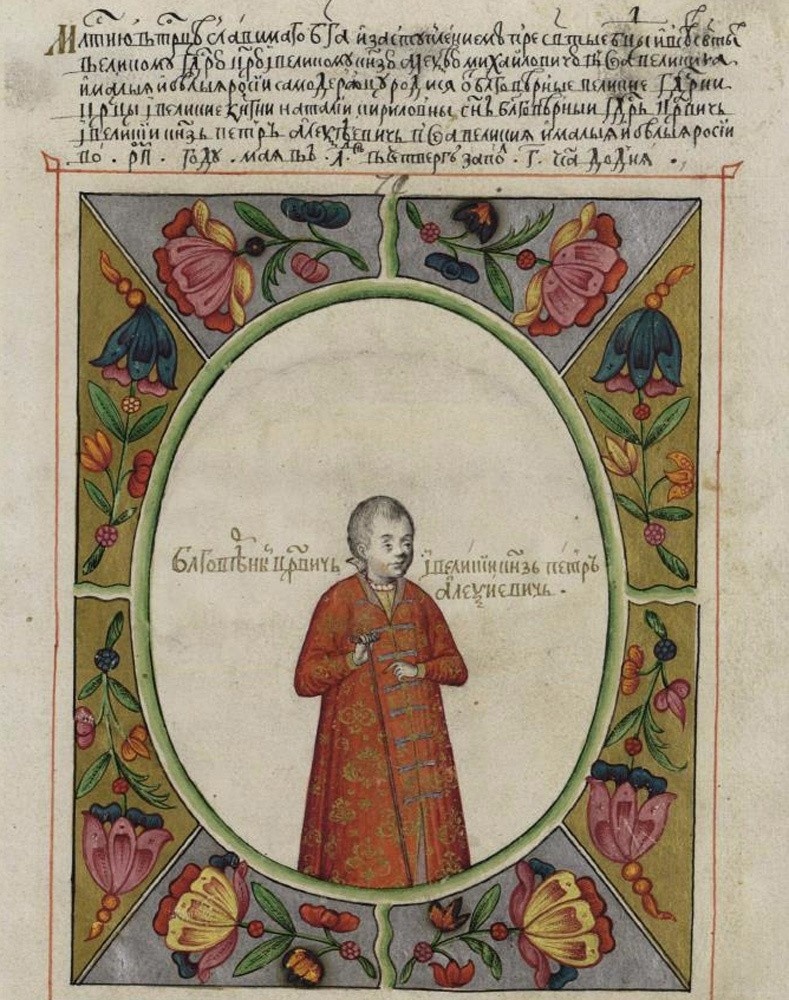 Млстию вътрцы славимаго бга и заступлениемъ пресвтые бцы и всѣхъ свты
великому гдрю црю і великому кнзю алеѯѣю михаиловичю всеа великия
и малыя и бѣлыя росіи самодержцу родися о благовѣрные великие гдрни
црцы і великие кнгни наталіи кириловны снъ благовѣрныи гдрь црвичь
і великіи кнзь петръ алеѯѣевичь всеа великия и малыя и бѣлыя росіи
во . рп . году . маія въ . л . въ четвергъ за пол . г . часа до дня .
Блговѣрны црвичь і великіи кнзь петръ
алеѯиевичь .